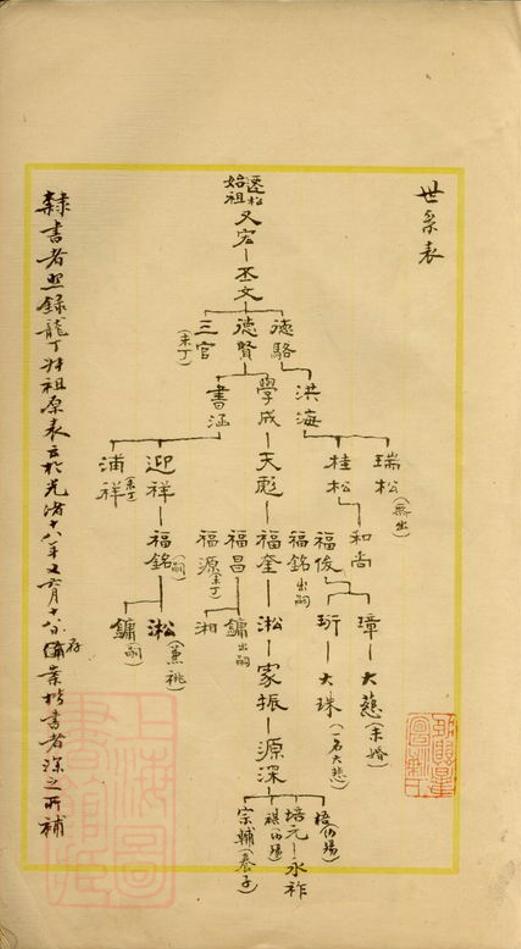 世系表
遷松
始祖
又宏
丕文
德駱
德賢
三官(未丁)
洪海
學成
書涵
瑞松(無出)
桂松
天彪
迎祥
浦祥(未丁)
和尚
福俊
福銘出嗣
福奎
福昌
福源(未丁)
福銘(嗣)
璋
珩
淞
鏞出嗣
湘
淞(兼祧)
鏞(嗣)
大慈(未婚)
大珠(一名大悲)
家振
源深
梧(仍殤)
培元
永祚
祺(仍殤)
宗輔(養子)
隸書者照錄龍丁叔祖原表云於光緒十八年又六月十八日備案存楷書者深之所補
上海圖書館藏